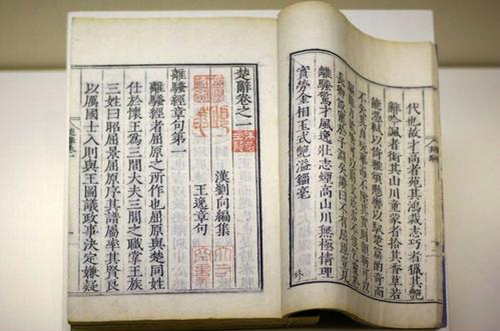 代也故才高者苑其鴻裁志巧者獵其艷
辭吟諷者銜其山川童蒙者拾其香草若
能憑軾以倚雅頌懸轡以馭楚篇酌奇而
不失其貞翫華而不墜其實則顧盼可以
驅辭力欬唾可以窮文致亦不復乞靈於
長卿假寵於子淵矣讚曰不有屈原豈見
離騷驚才風逸壯志煙高山川無極情理
實勞金相玉式艷溢錙毫
楚辭卷之一
漢劉向編集
王逸章句
離騷經章句第一
離騷經者屈原之所作也屈原與楚同姓
仕於懷王為三閭大夫三閭之職掌王族
三姓曰昭屈景屈原序其譜屬率其賢良
以厲國士入則與王圖議政事決定嫌疑